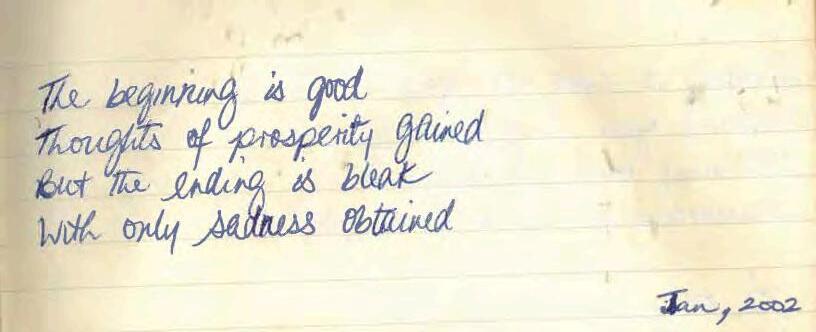 The beginning is good
Thoughts of prosperity gained
But the ending is bleak
With only sadness obtained
Jan, 2002